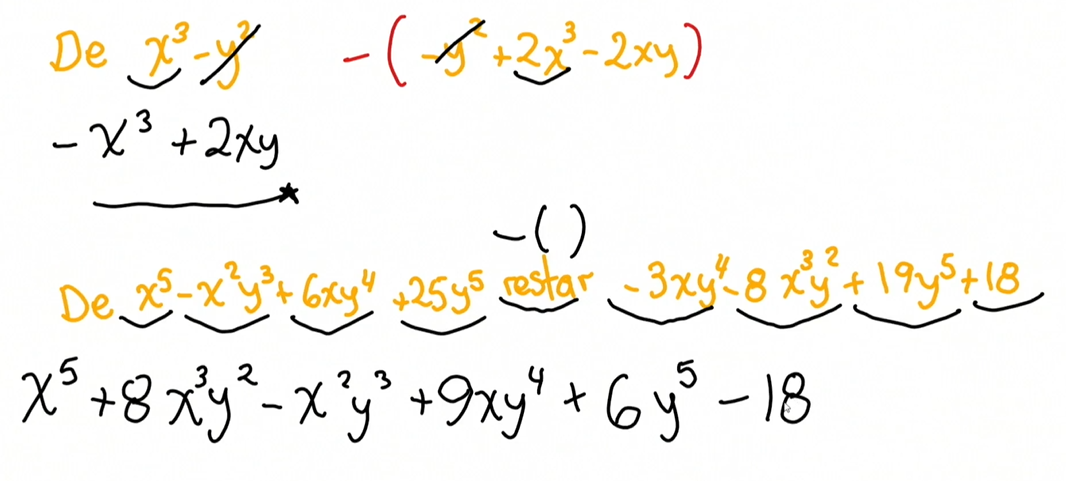 De x³ - y² - ( - y² + 2x³ - 2xy )
- x³ + 2xy
- ( )
De x⁵ - x²y³ + 6xy⁴ + 25y⁵ restar - 3xy⁴ - 8x³y² + 19y⁵ + 18
x⁵ + 8x³y² - x²y³ + 9xy⁴ + 6y⁵ - 18